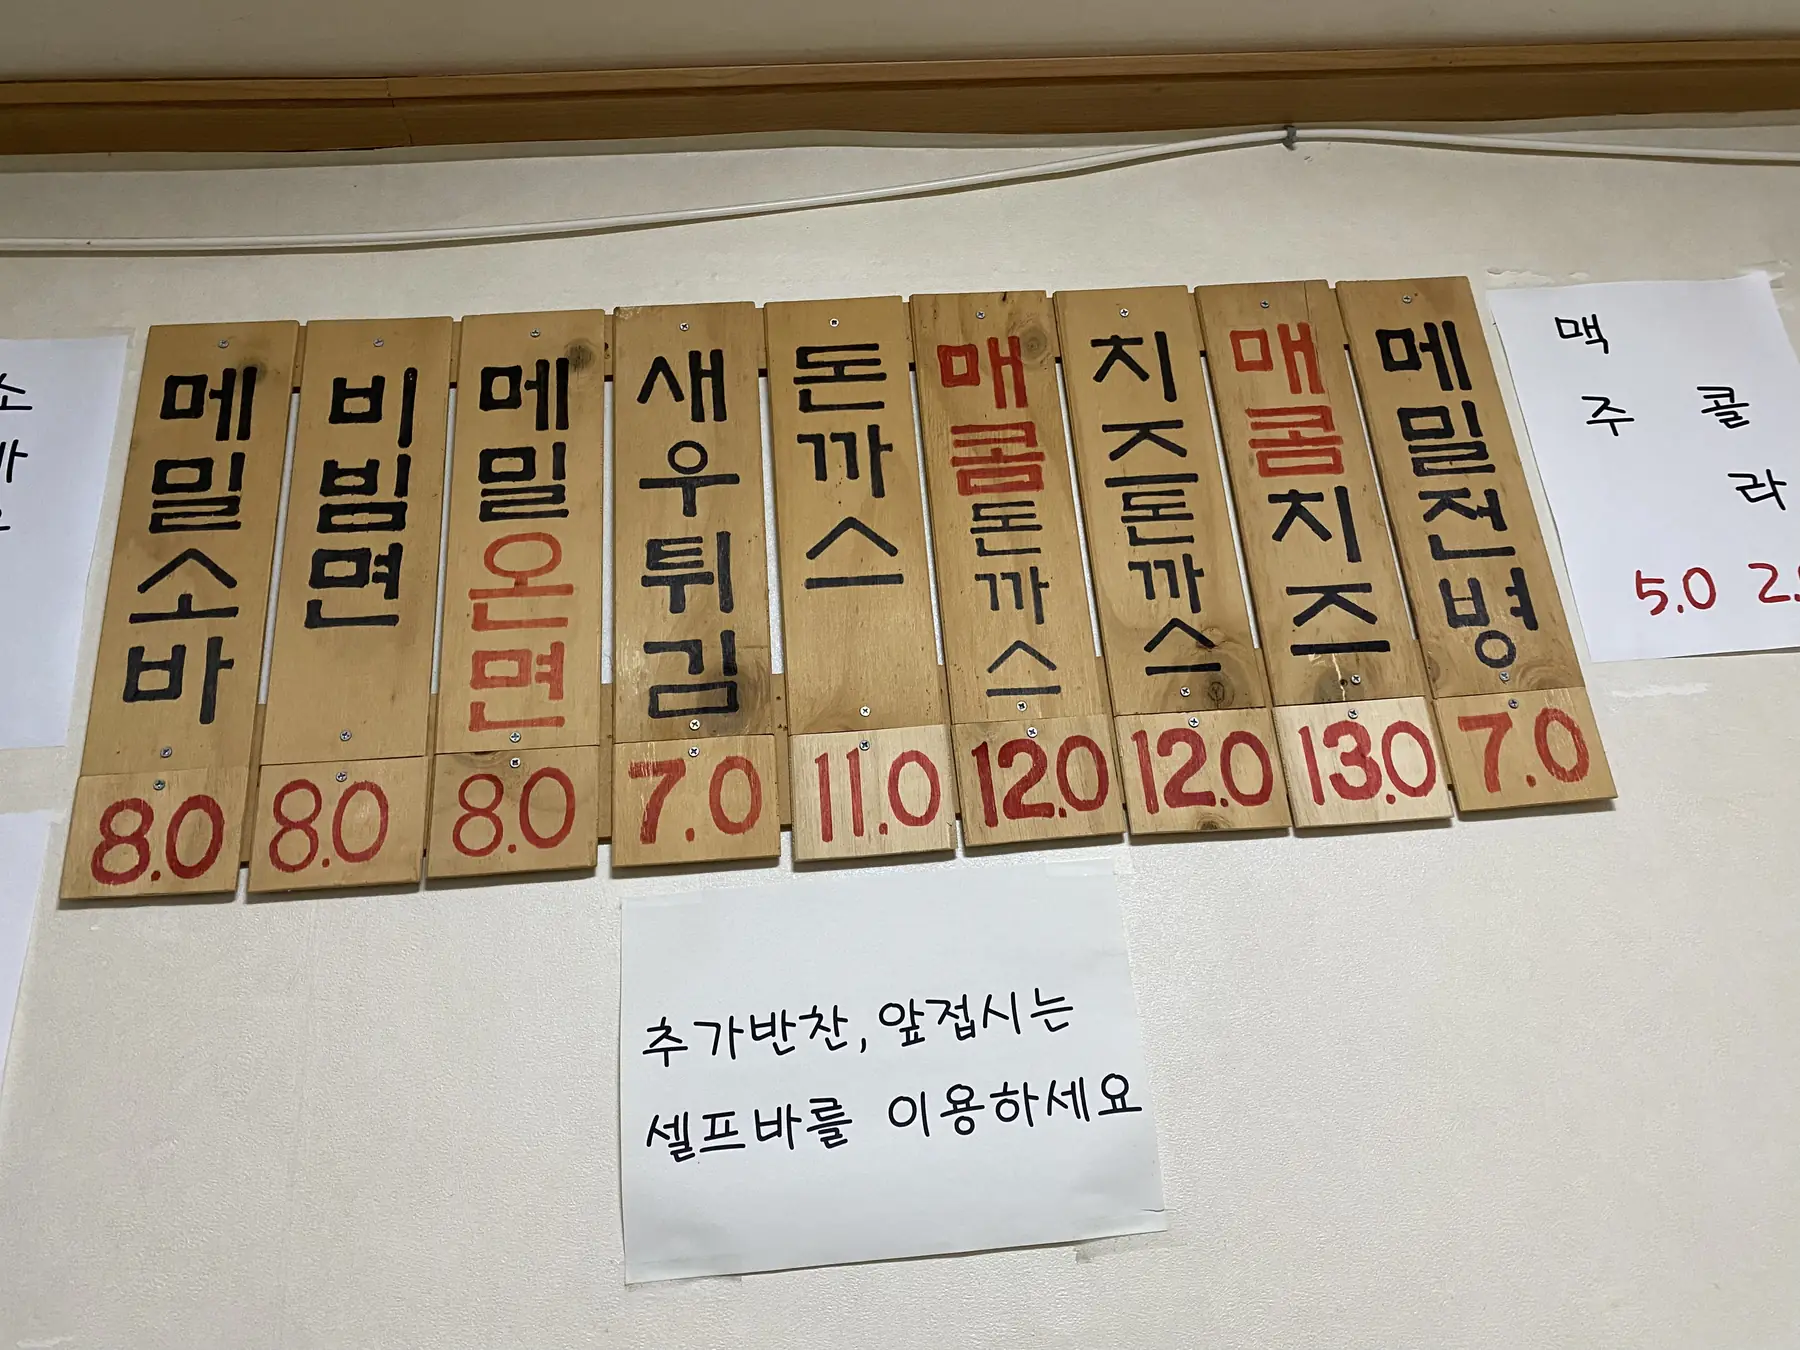 메밀소바
8.0
비빔면
8.0
메밀온면
8.0
새우튀김
7.0
돈까스
11.0
매콤돈까스
12.0
치즈돈까스
12.0
매콤치즈
13.0
메밀전병
7.0
맥주
5.0
콜라
추가반찬, 앞접시는
셀프바를 이용하세요